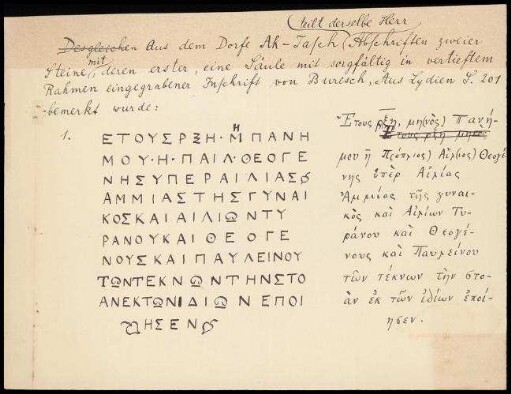 teilt derselbe Herr
Desgleichen Aus dem Dorfe Ak-Tasch (Abschriften zweier
Steine mit, deren erster, eine Säule mit sorgfältig in vertieftem
Rahmen eingegrabener Inschrift von Buresch, Aus Lydien S. 201
bemerkt wurde:
1.
ΕΤΟΥΣΡΞΗ·ΜΗΠΑΝΗ
ΜΟΥ·Η·ΠΑΙΛ·ΘΕΟΓΕ
ΝΗΣΥΠΕΡΑΙΛΙΑΣ
ΑΜΜΙΑΣΤΗΣΓΥΝΑΙ
ΚΟΣΚΑΙΑΙΛΙΩΝΤΥ
ΡΑΝΟΥΚΑΙΘΕΟΓΕ
ΝΟΥΣΚΑΙΠΑΥΛΕΙΝΟΥ
ΤΩΝΤΕΚΝΩΝΤΗΝΣΤΟ
ΑΝΕΚΤΩΝΙΔΙΩΝΕΠΟΙ
ΗΣΕΝ
Ἔτους ρξη, μη(νὸς) Πανή-
Ἔτους ρξη μηνὸς
μου η̄ Πό(πλιος) Αἴλ(ιος) Θεογέ-
νης ὑπὲρ Αἰλίας
Ἀμμίας τῆς γυναι-
κὸς καὶ Αἰλίων Τυ-
ράνου καὶ Θεογέ-
νους καὶ Παυλείνου
τῶν τέκνων τὴν στο-
ὰν ἐκ τῶν ἰδίων ἐποί-
ησεν.